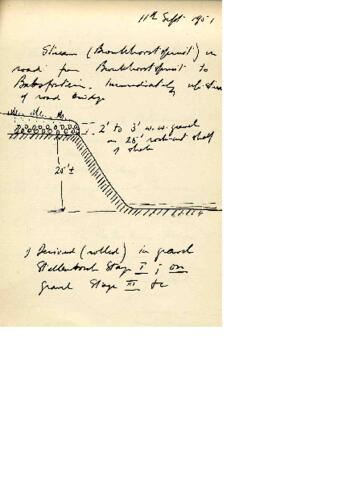 11th Sept 1951
Stream (Bronkhorstspruit) on
road from Bronkhorstspruit to
Bapsfontein. Immediately up-stream
of road bridge
2' to 3' w.w. gravel
on 25' rock-cut shelf
of shale
25' ±
Derived (rolled) in gravel
Stellenbosch Stage I ; on
gravel Stage III &c